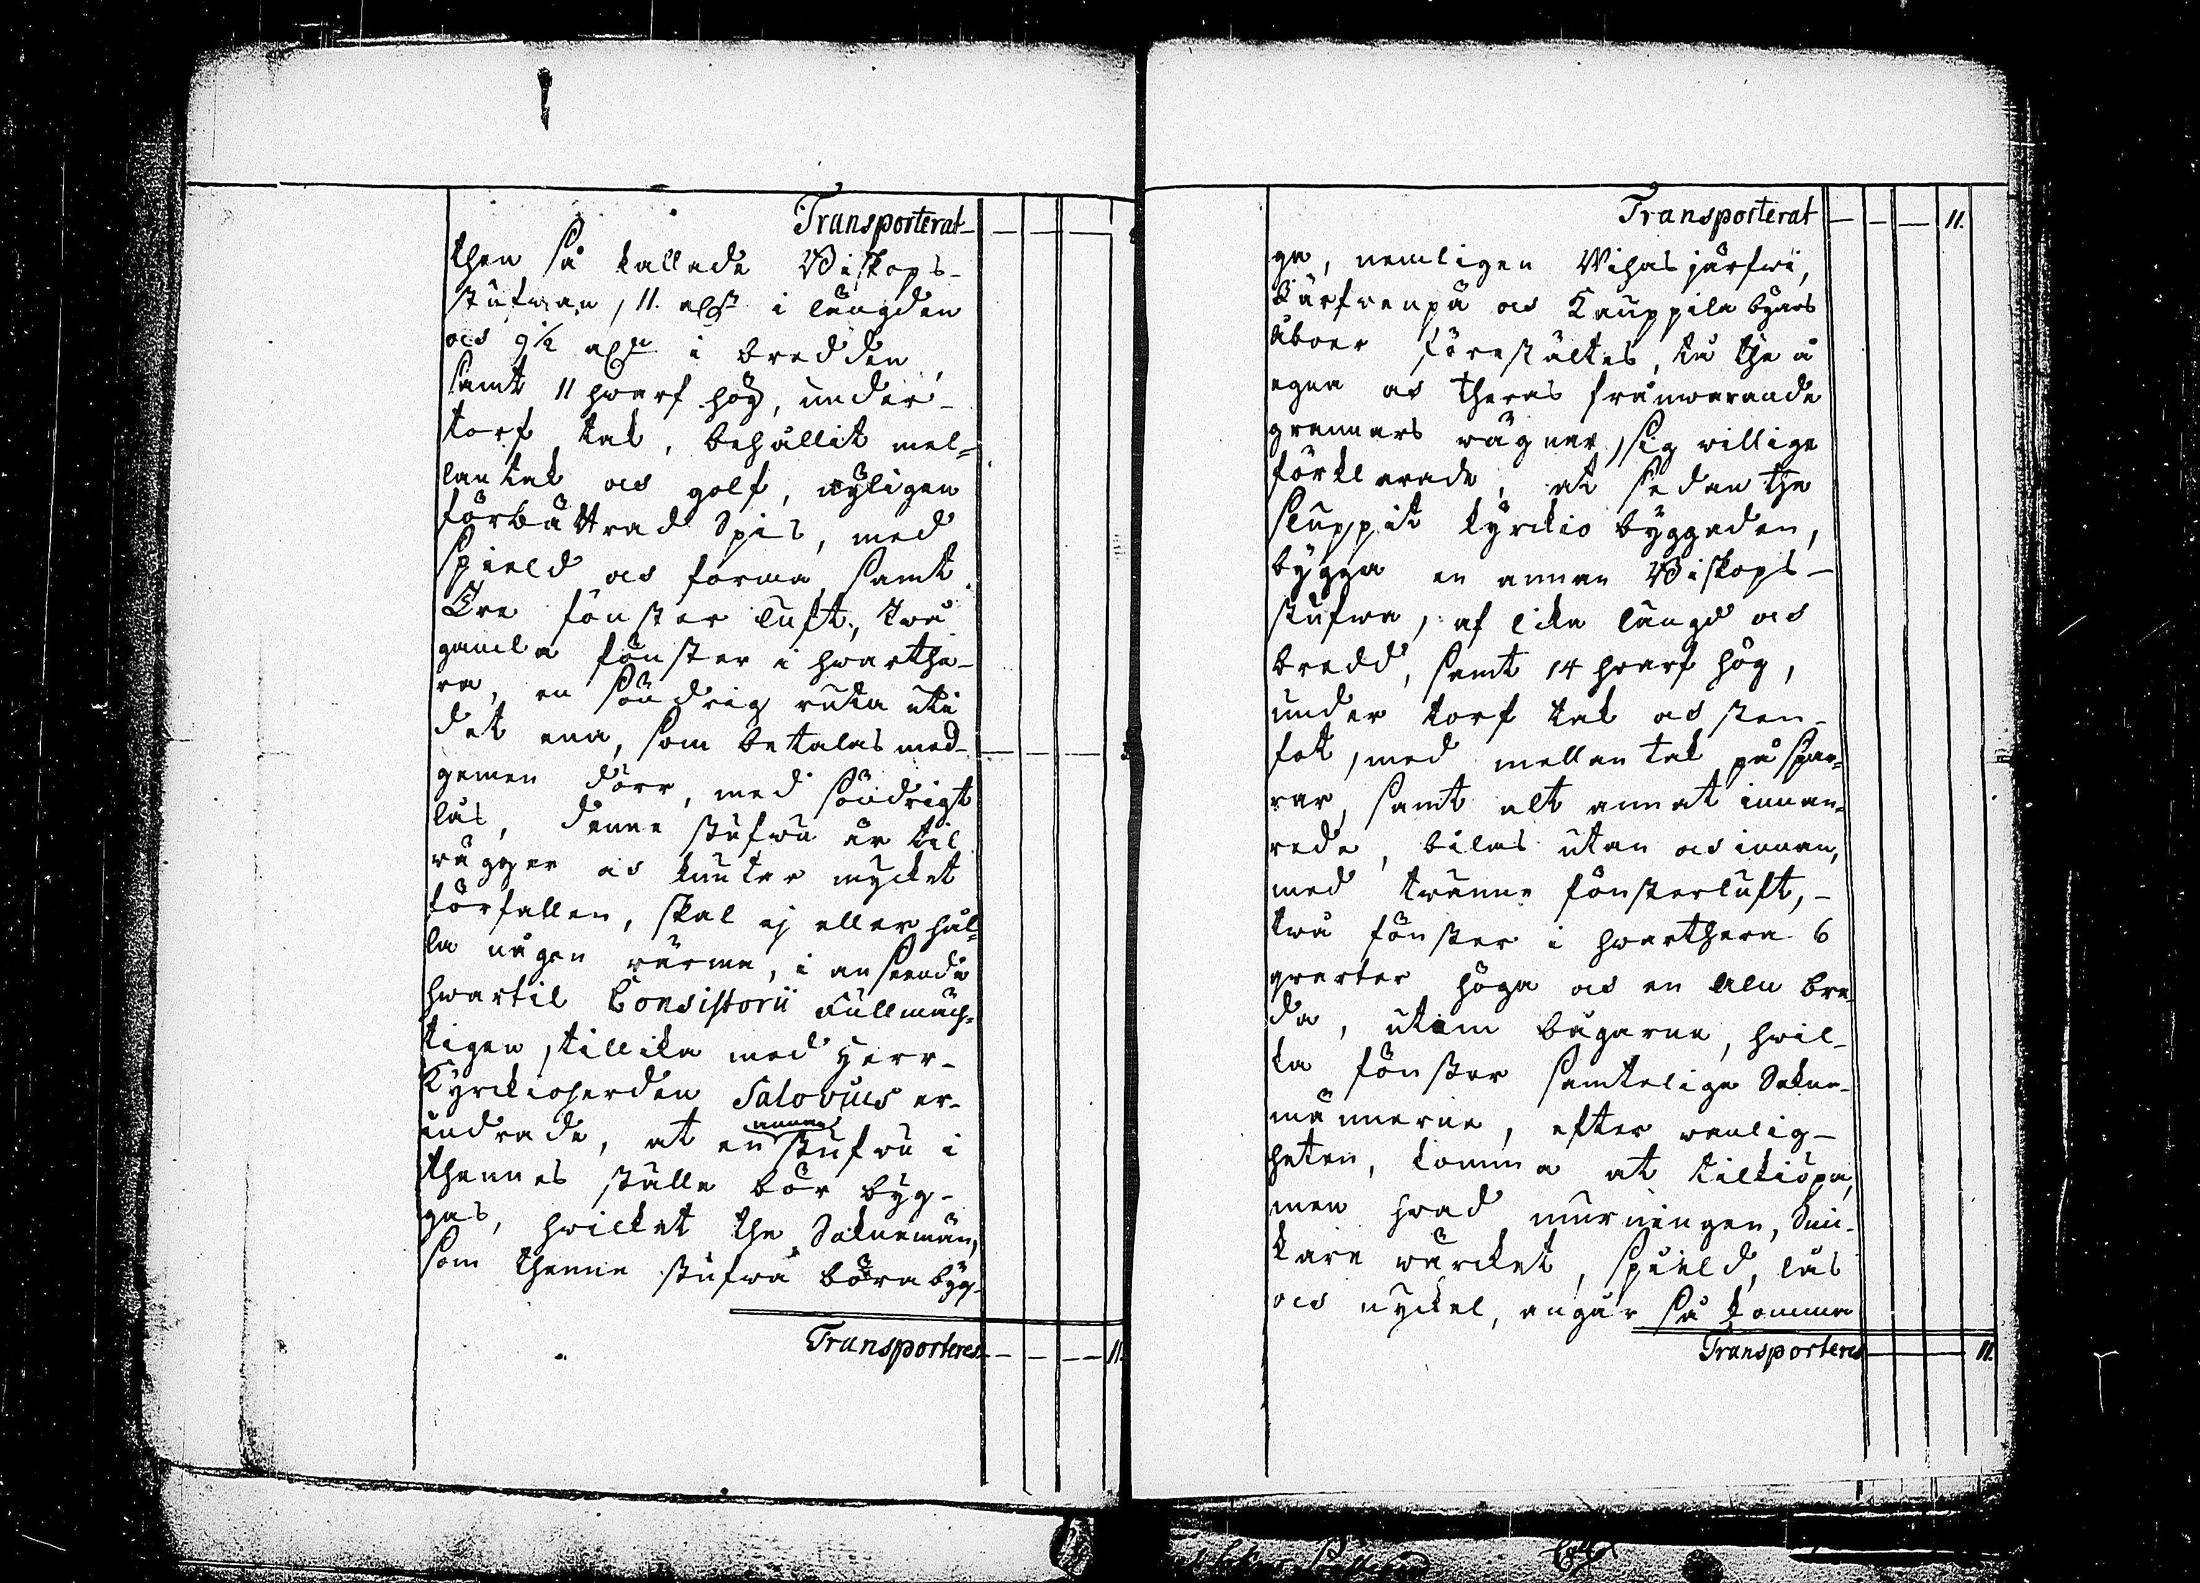 Transporterat
then så kallade Biskops-
stufwan, 11. aln:r i längden
och 9½ aln:r i bredden,
samt 11 hwarf hög, under
torf tak, behållit mel-
lantak och golf, nyligen
förbättrad Spis, med
Spield och forma samt
Tre fönster luft, två
gamla fönster i hwarthe-
ra, en söndrig ruta uti
det ena, som betalas med
gemen dörr, med söndrigt
lås, denne stufwu är til
wägger och knutar mycket
förfallen, skal ej eller hål-
la någon wärma, i anseende
hwartil Consistorii Fullmäch-
tigen, tillika med Herr
Kyrckioherden Salovius er-
indrade, at en annan stufwu i
thennes ställe bör byg-
gas, hvilket the Soknemän,
som thenne stufwu böra byg-
Transporteres — — — 11.
Transporterat — — — 11.
ga, nemligen Wihasjärfwi,
Järfvenpä och Kauppila byars
åboer förestältes, tå the å
egna och theras frånwarande
grannars wägnar, sig willige
förklarade, at sedan the
sluppit kyrckio byggnaden,
bygga en annan Biskops-
stufwa, af lika längd och
bredd, samt 14 hvarf hög,
under torf tak och sten-
fot, med mellantak på spar-
rar, samt alt annat innan-
rede, bilas utan och innan,
med twänne fönsterluft,
twå fönster i hwarthera 6
qvarter höga och en Aln bre-
da, utom bågarne, hvil-
ka fönster samtelige Sokne-
männerne, efter wanlig-
heten, komma at tilkiöpa,
men hvad murningen, Snic-
kare wärcket, spield, lås
och nyckel, angår så komma
Transporteres 11.